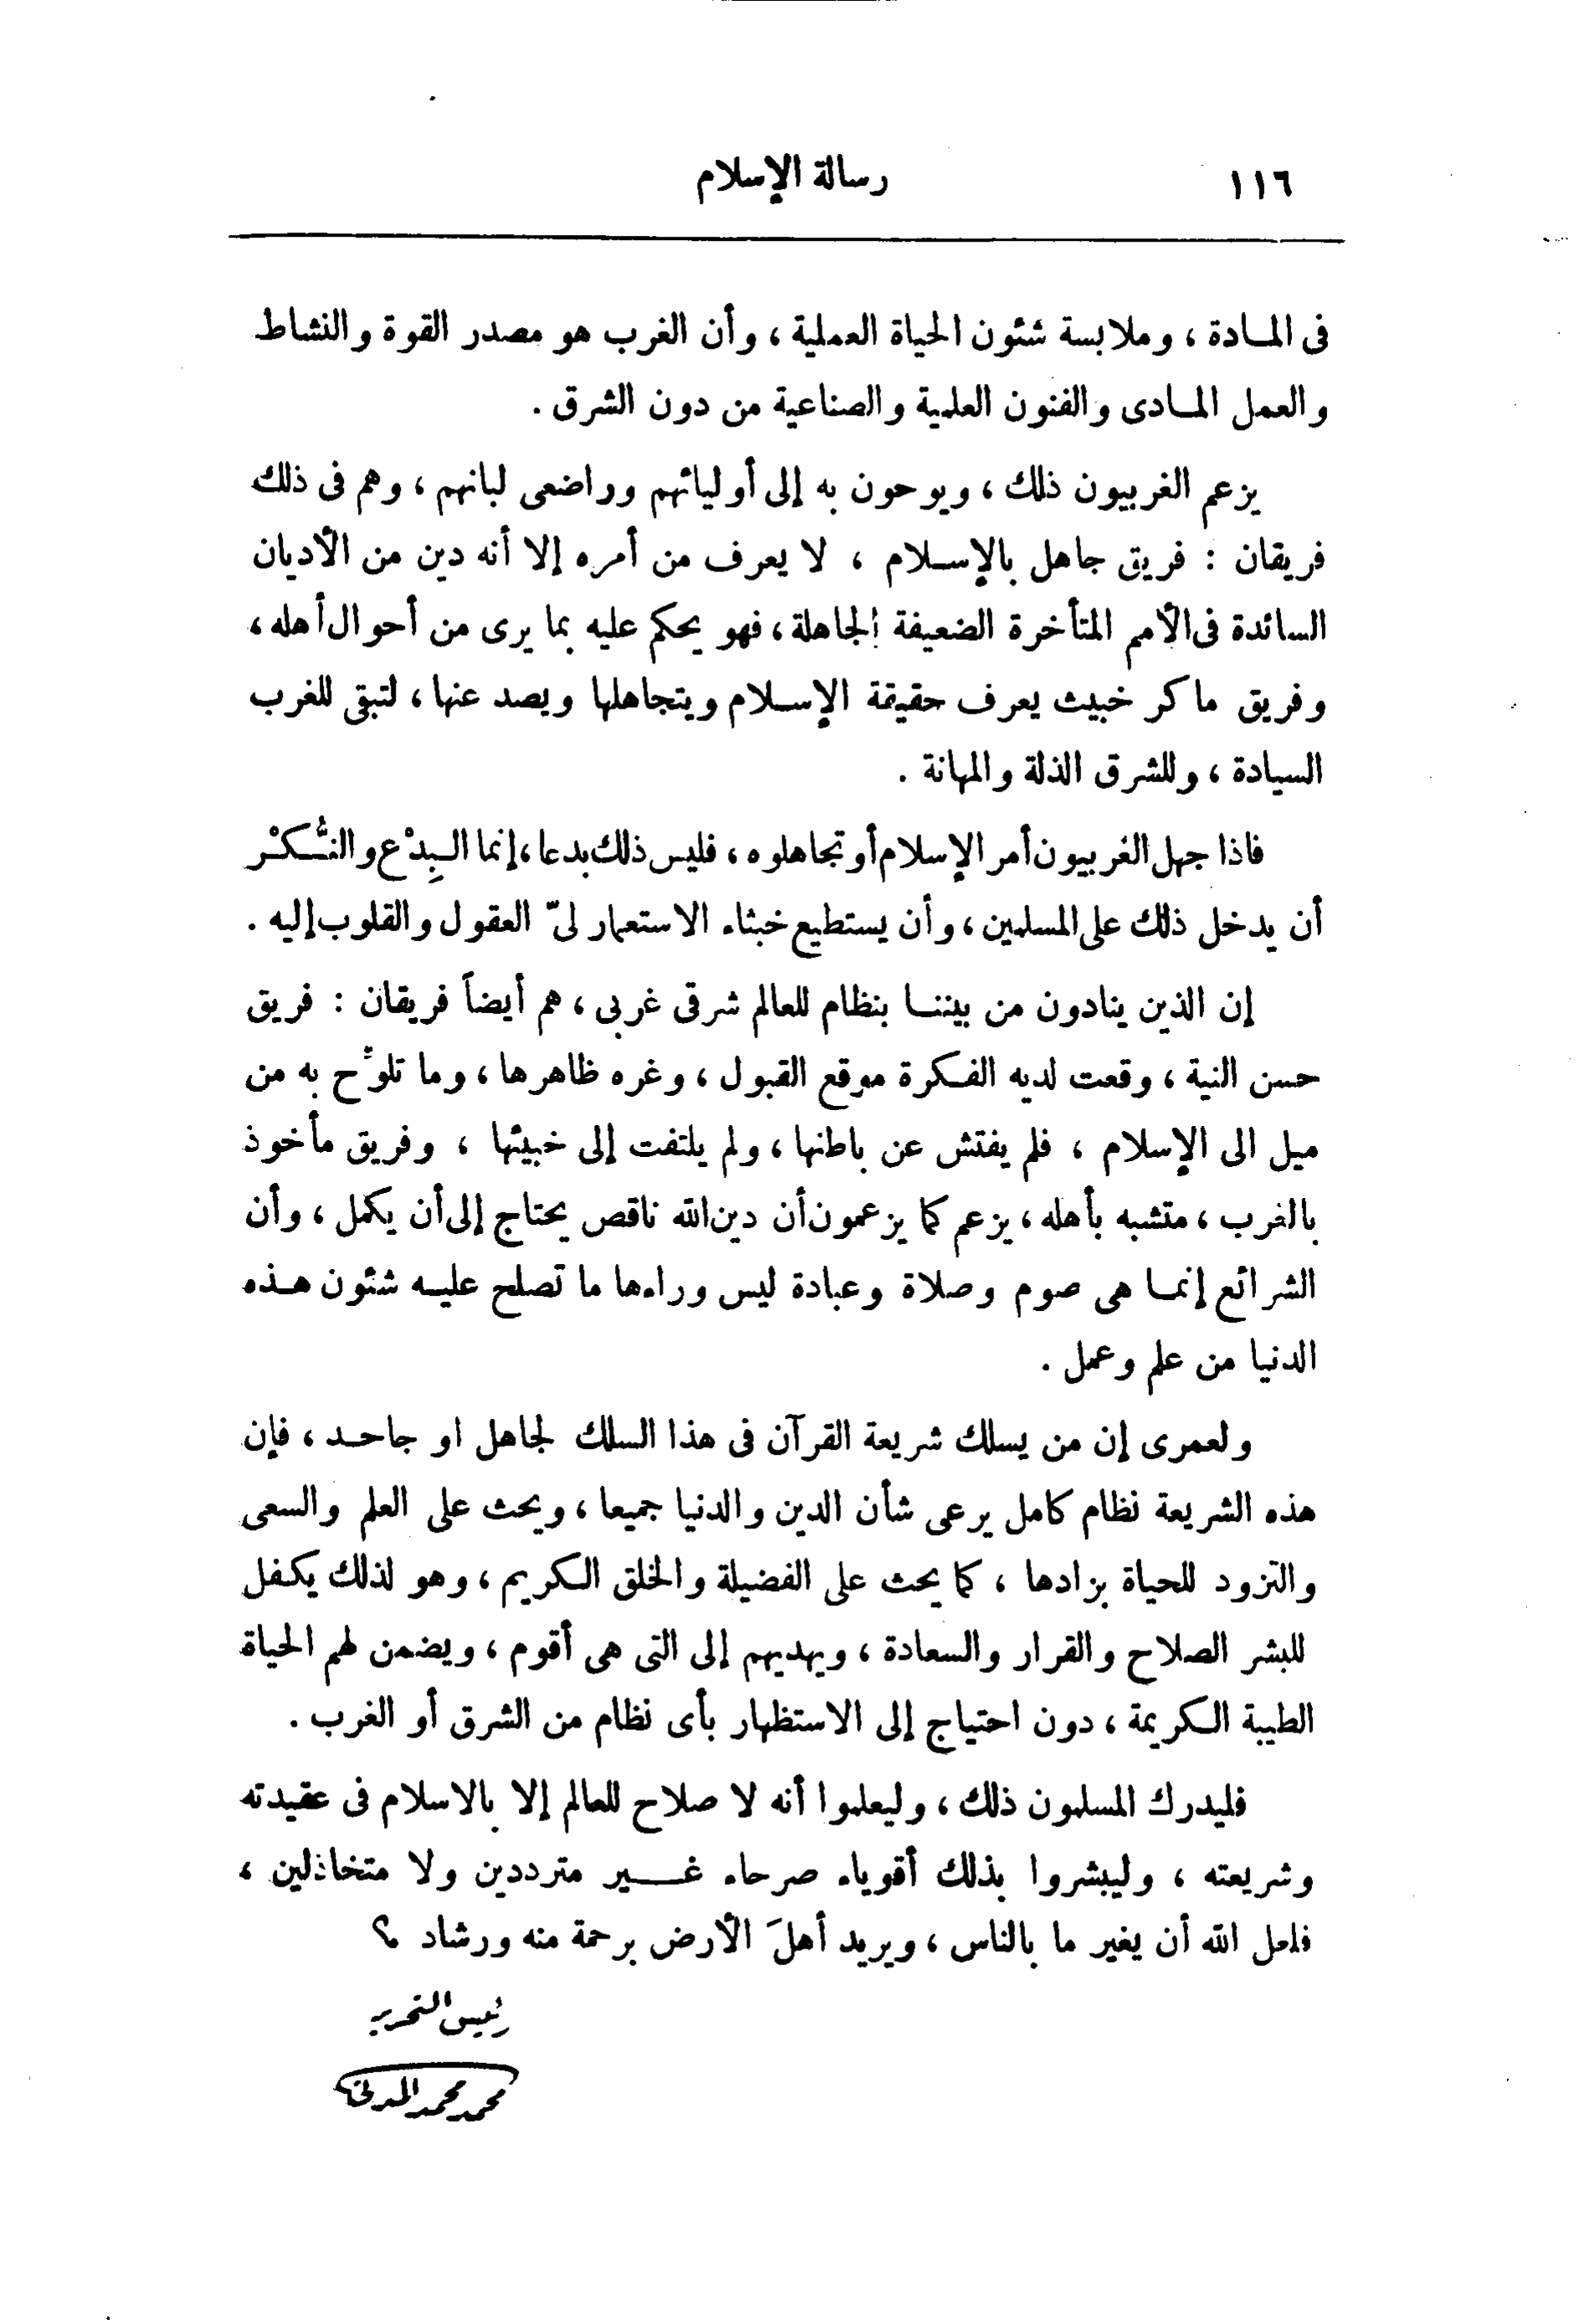 ١١٦
رسالة الإسلام
فى المادة ، وملابسة شئون الحياة العملية ، وأن الغرب هو مصدر القوة والنشاط
والعمل المادى والفنون العلمية والصناعية من دون الشرق .
يزعم الغربيون ذلك ، ويوحون به إلى أوليائهم وراضعى لبانهم ، وهم فى ذلك
فريقان : فريق جاهل بالإسلام ، لا يعرف من أمره إلا أنه دين من الأديان
السائدة فى الأمم المتأخرة الضعيفة الجاهلة ، فهو يحكم عليه بما يرى من أحوال أهله ،
وفريق ماكر خبيث يعرف حقيقة الإسلام ويتجاهلها ويصد عنها ، لتبقى للغرب
السيادة ، وللشرق الذلة والمهانة .
فاذا جهل الغربيون أمر الإسلام أو تجاهلوه ، فليس ذلك بدعا ، إنما البِدْع والنُّكْر
أن يدخل ذلك على المسلمين ، وأن يستطيع خبثاء الاستعمار لىّ العقول والقلوب إليه .
إن الذين ينادون من بيننا بنظام للعالم شرقى غربى ، هم أيضاً فريقان : فريق
حسن النية ، وقعت لديه الفكرة موقع القبول ، وغره ظاهرها ، وما تلوِّح به من
ميل الى الإسلام ، فلم يفتش عن باطنها ، ولم يلتفت إلى خبيئها ، وفريق مأخوذ
بالغرب ، متشبه بأهله ، يزعم كما يزعمون أن دين الله ناقص يحتاج إلى أن يكمل ، وأن
الشرائع إنما هى صوم وصلاة وعبادة ليس وراءها ما تصلح عليه شئون هذه
الدنيا من علم وعمل .
ولعمرى إن من يسلك شريعة القرآن فى هذا السلك لجاهل او جاحد ، فإن
هذه الشريعة نظام كامل يرعى شأن الدين والدنيا جميعا ، ويحث على العلم والسعى
والتزود للحياة بزادها ، كما يحث على الفضيلة والخلق الكريم ، وهو لذلك يكفل
للبشر الصلاح والقرار والسعادة ، ويهديهم إلى التى هى أقوم ، ويضمن لهم الحياة
الطيبة الكريمة ، دون احتياج إلى الاستظهار بأى نظام من الشرق أو الغرب .
فليدرك المسلمون ذلك ، وليعلموا أنه لا صلاح للعالم إلا بالاسلام فى عقيدته
وشريعته ، وليبشروا بذلك أقوياء صرحاء غير مترددين ولا متخاذلين ،
فلعل الله أن يغير ما بالناس ، ويريد أهلَ الأرض برحمة منه ورشاد ؟
رئيس التحرير
محمد محمد المدنى